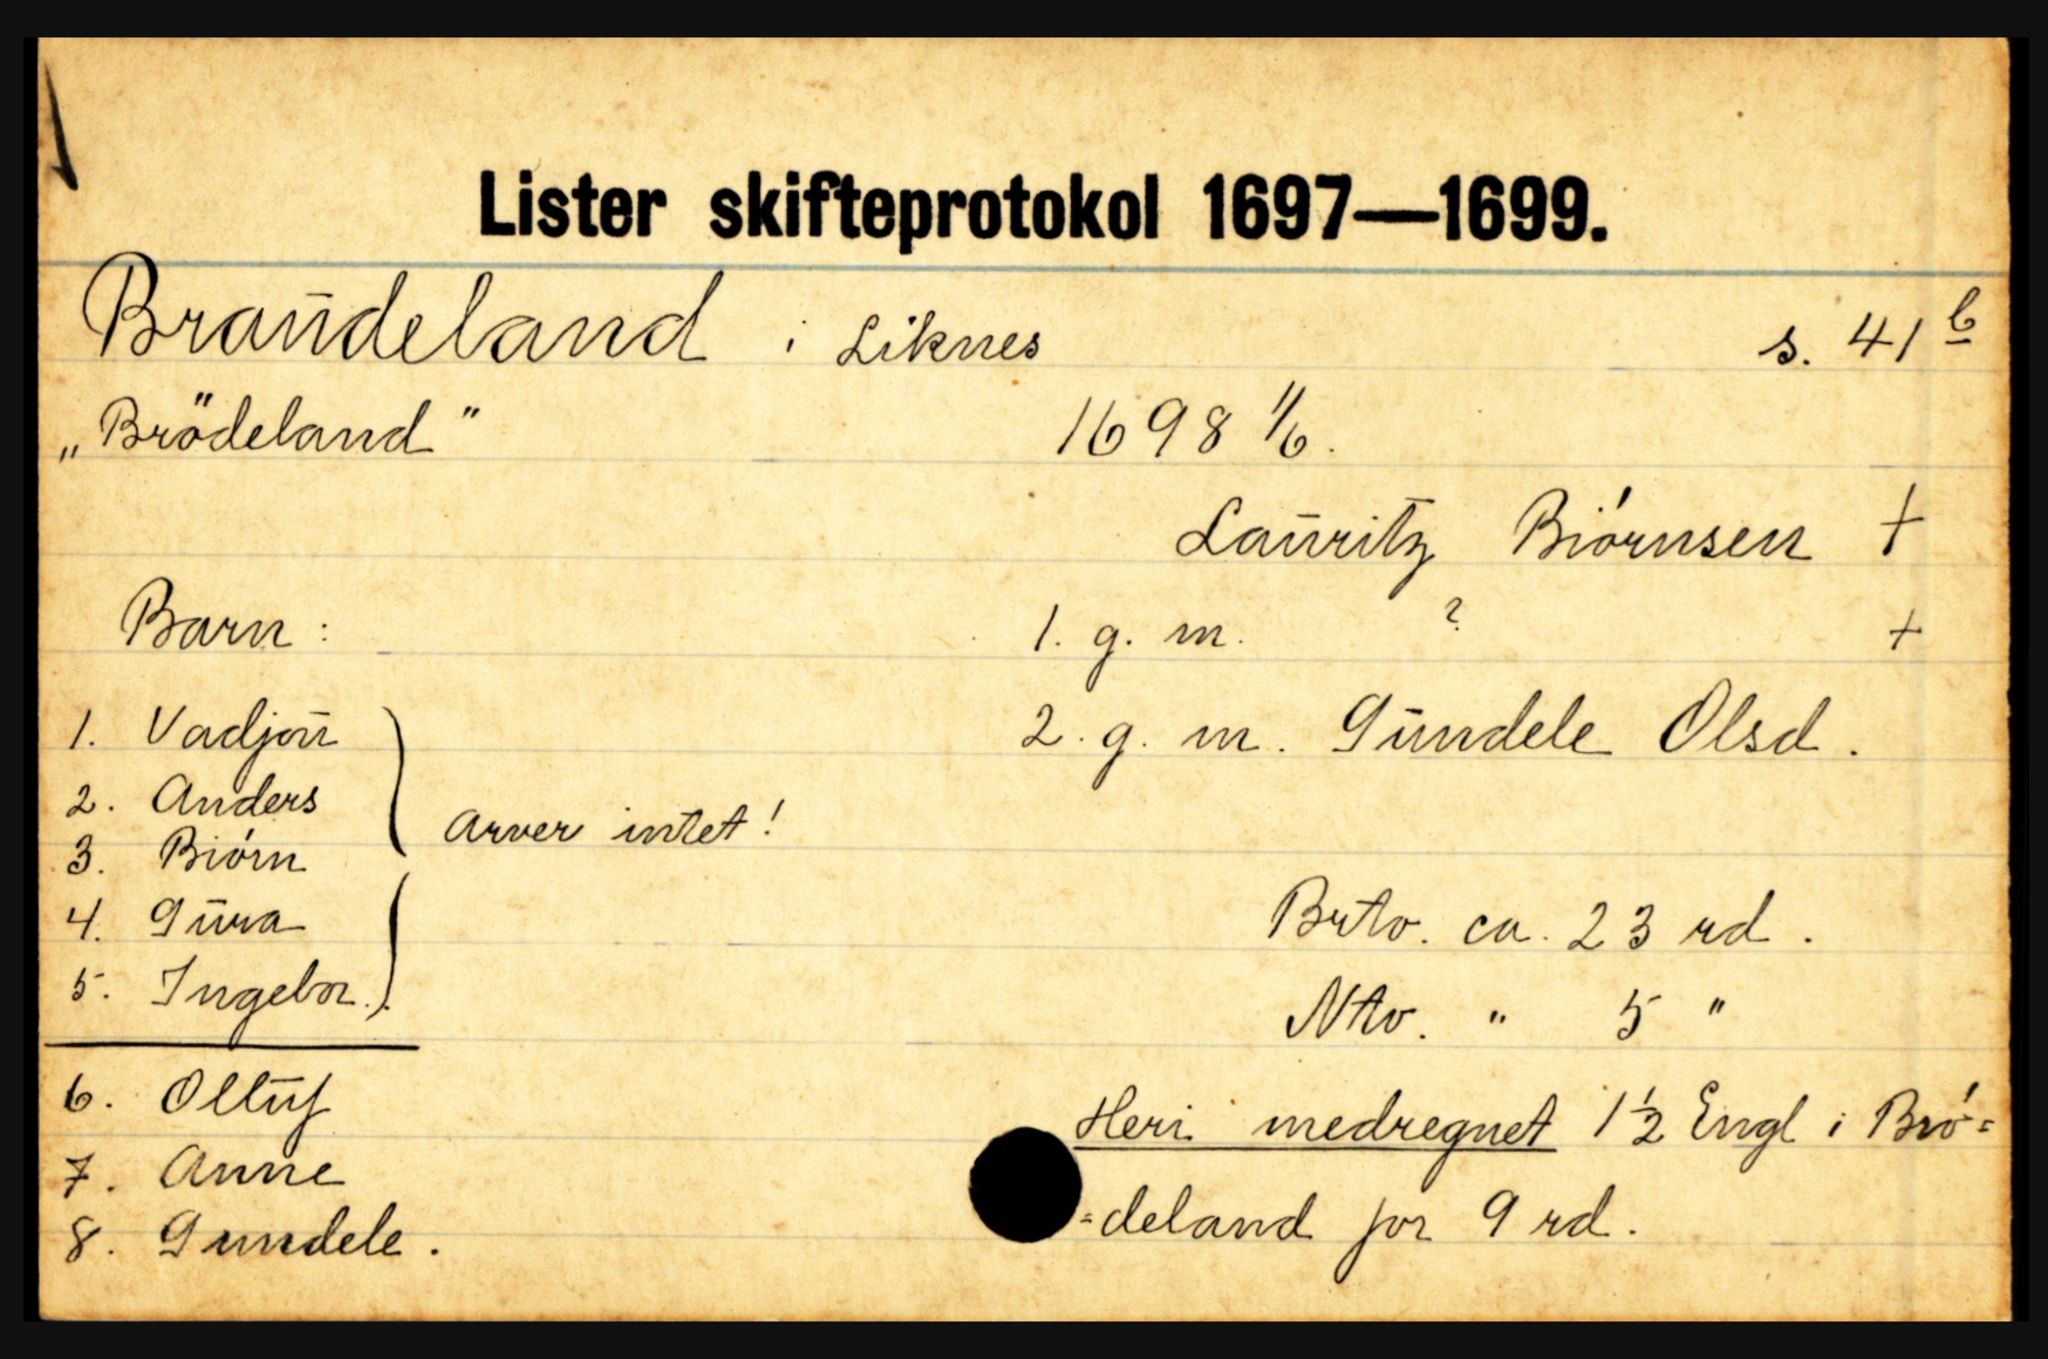 Lister skifteprotokol 1697—1699.
Braudeland i Liknes s. 41 b
"Brödeland" 1698 1/6.
Lauritz Biørnsen +
Barn: 1. g. m. ? +
1. Vadjou 2. g. m. Gundele Olsd.
2. Anders
3. Biørn
Arver intet!
4. Gura Brto. ca. 23 rd.
5. Ingebor. Nto. " 5 "
6. Olluf
Heri medregnet 1½ Engl i Brø=
7. Anne
=deland for 9 rd.
8. Gundele.